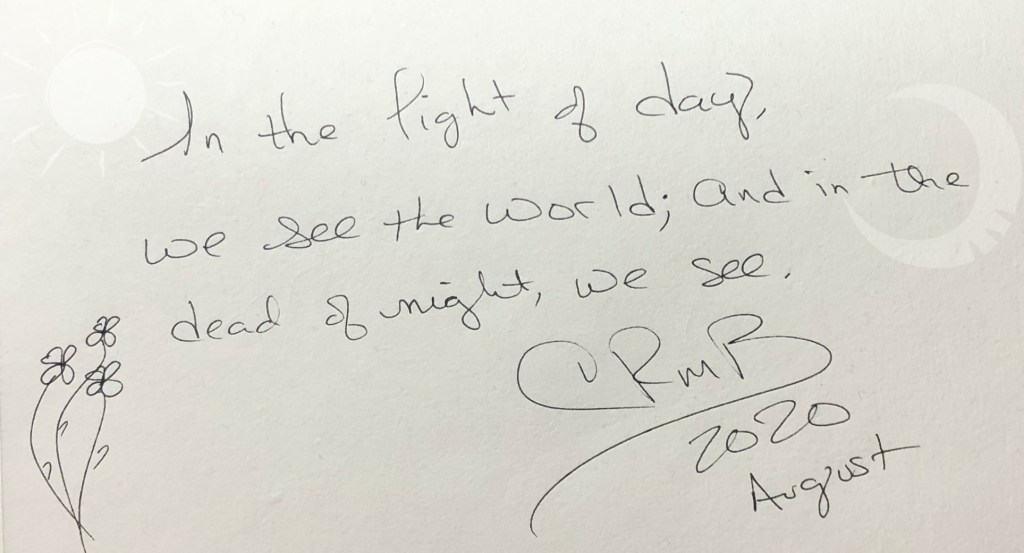 In the light of day,
we see the world; and in the
dead of night, we see.
CRmB
2020
August